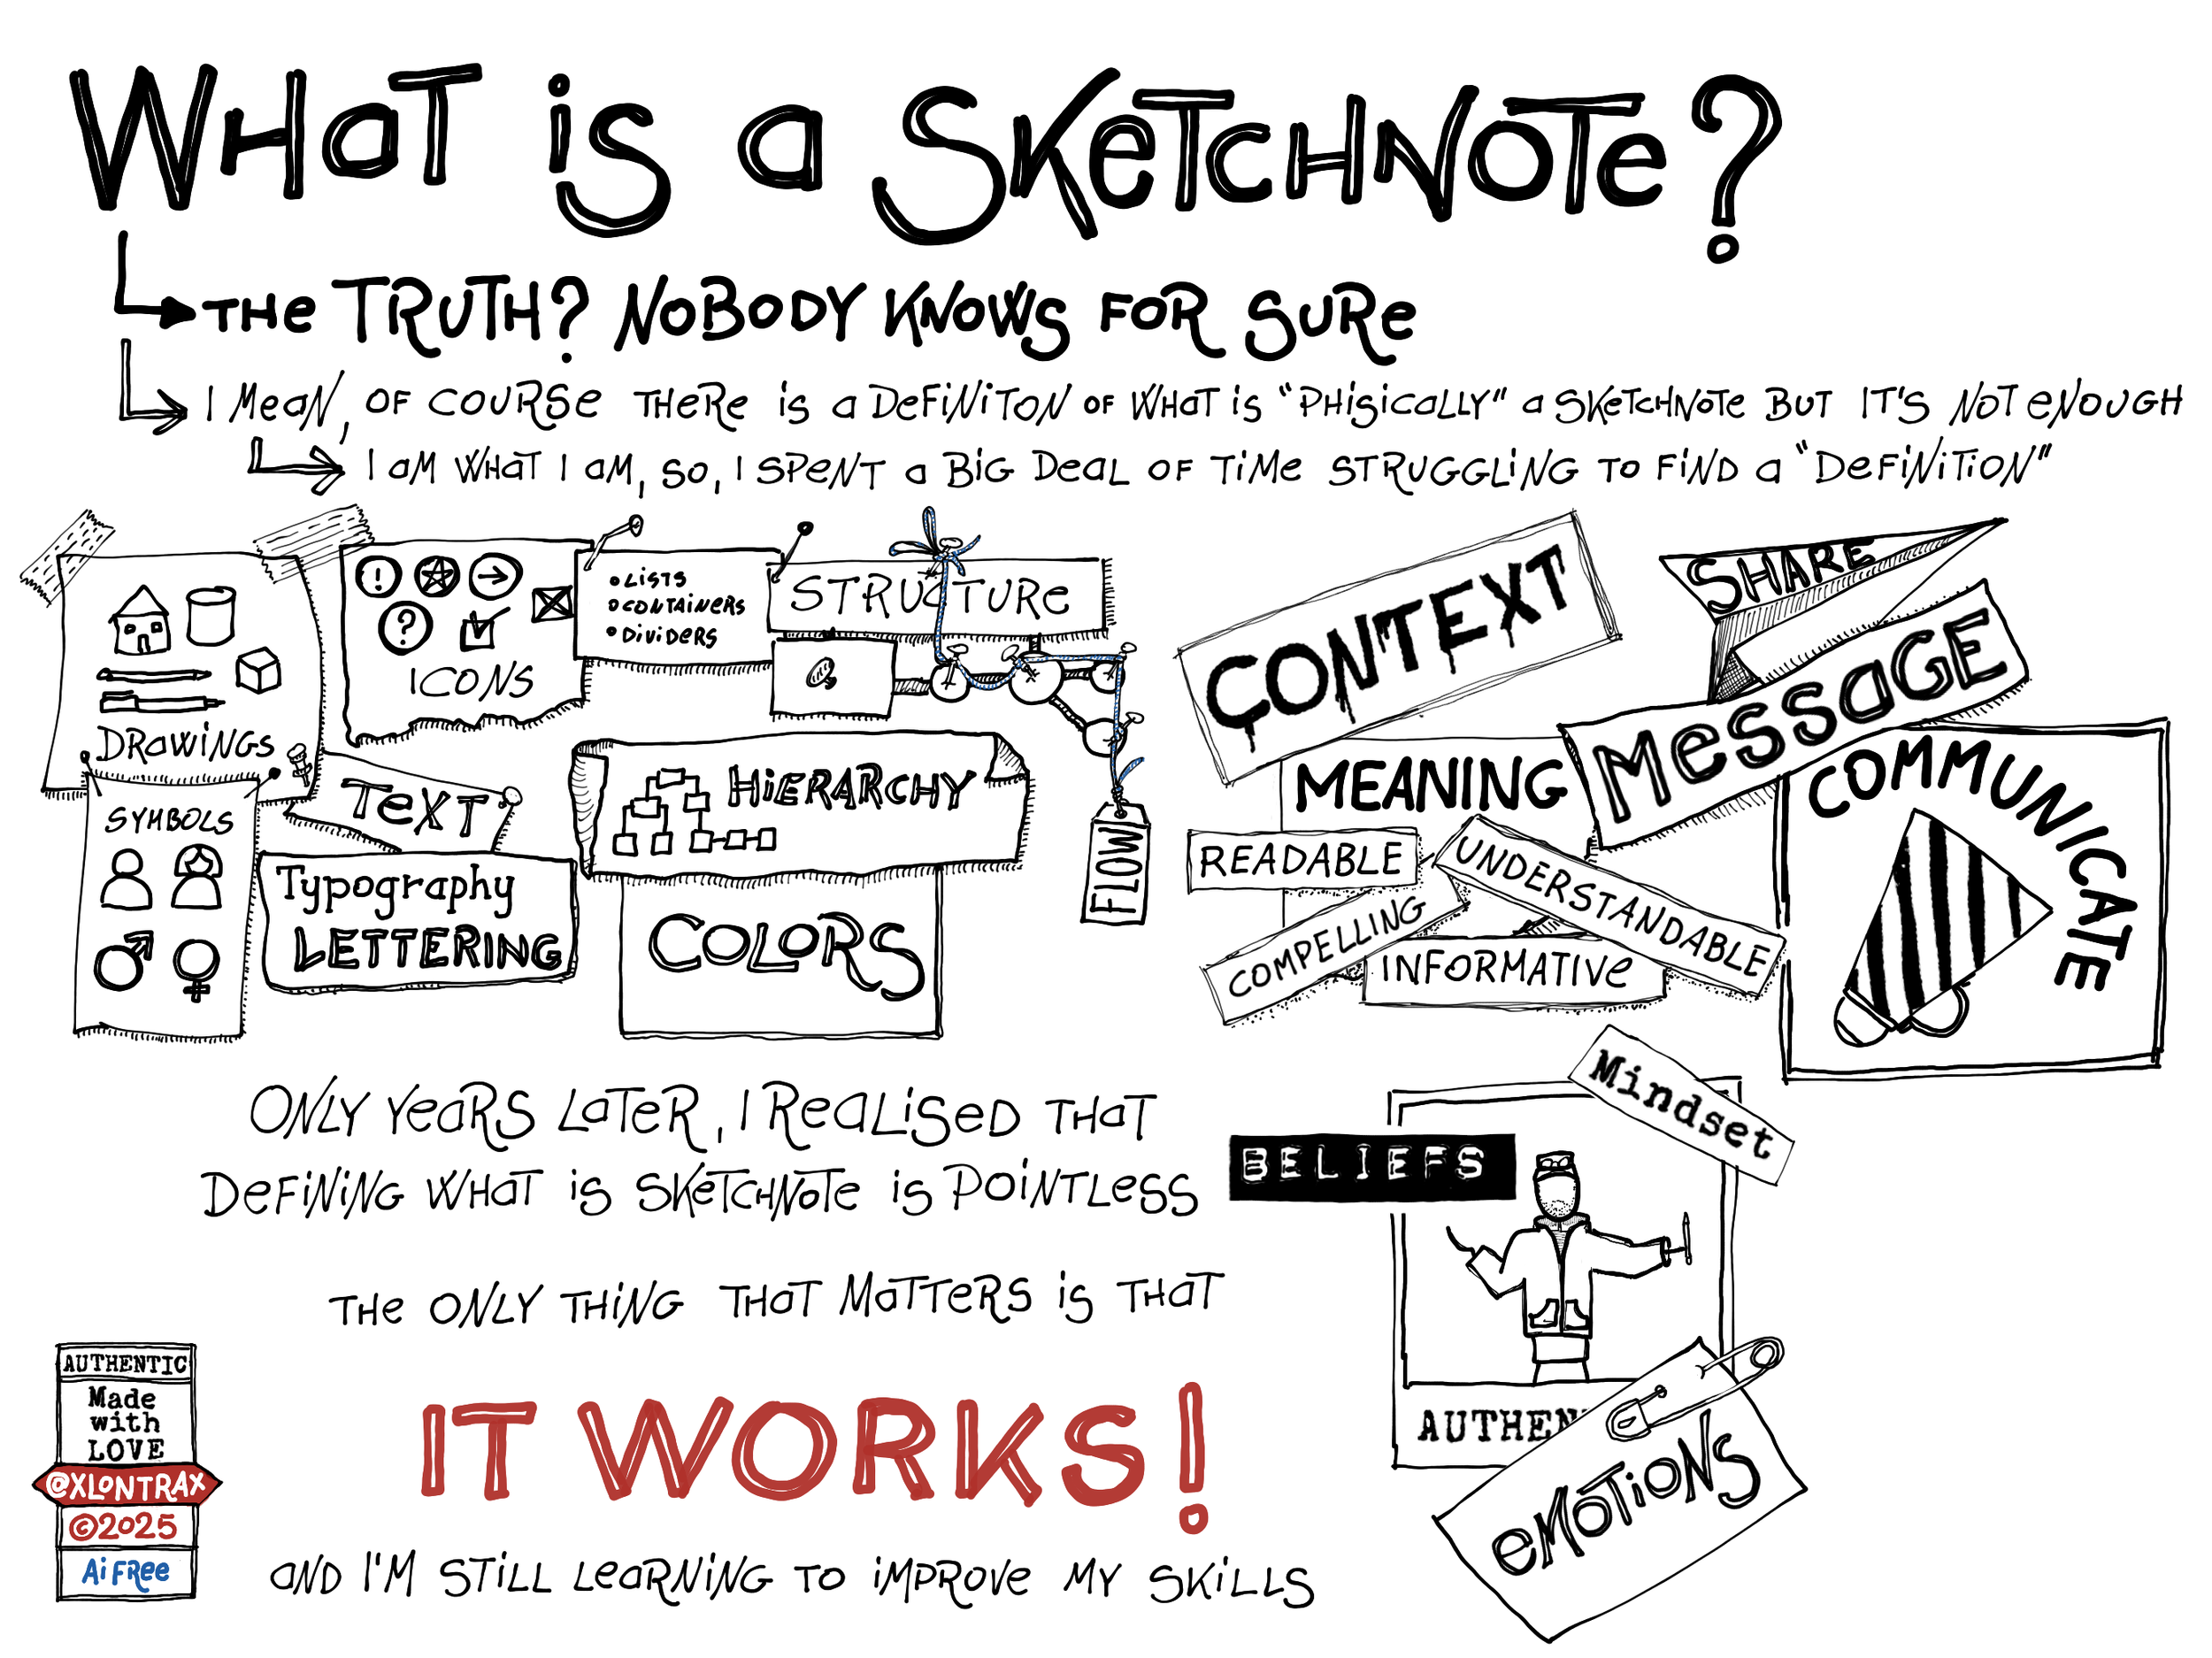 WHAT IS A SKETCHNOTE?
THE TRUTH? NOBODY KNOWS FOR SURE
I MEAN, OF COURSE THERE IS A DEFINITON OF WHAT IS "PHISICALLY" A SKETCHNOTE BUT IT'S NOT ENOUGH
I AM WHAT I AM, SO, I SPENT A BIG DEAL OF TIME STRUGGLING TO FIND A "DEFINITION"
DRAWINGS
ICONS
• LISTS
• CONTAINERS
• DIVIDERS
STRUCTURE
SYMBOLS
TEXT
Typography
LETTERING
HIERARCHY
COLORS
FLOW
CONTEXT
SHARE
MESSAGE
MEANING
COMMUNICATE
READABLE
UNDERSTANDABLE
COMPELLING
INFORMATIVE
ONLY YEARS LATER, I REALISED THAT
DEFINING WHAT IS SKETCHNOTE IS POINTLESS
THE ONLY THING THAT MATTERS IS THAT
IT WORKS!
AND I'M STILL LEARNING TO IMPROVE MY SKILLS
Mindset
BELIEFS
AUTHEN
EMOTIONS
AUTHENTIC
Made
with
LOVE
@XLONTRAX
©2025
Ai FREE